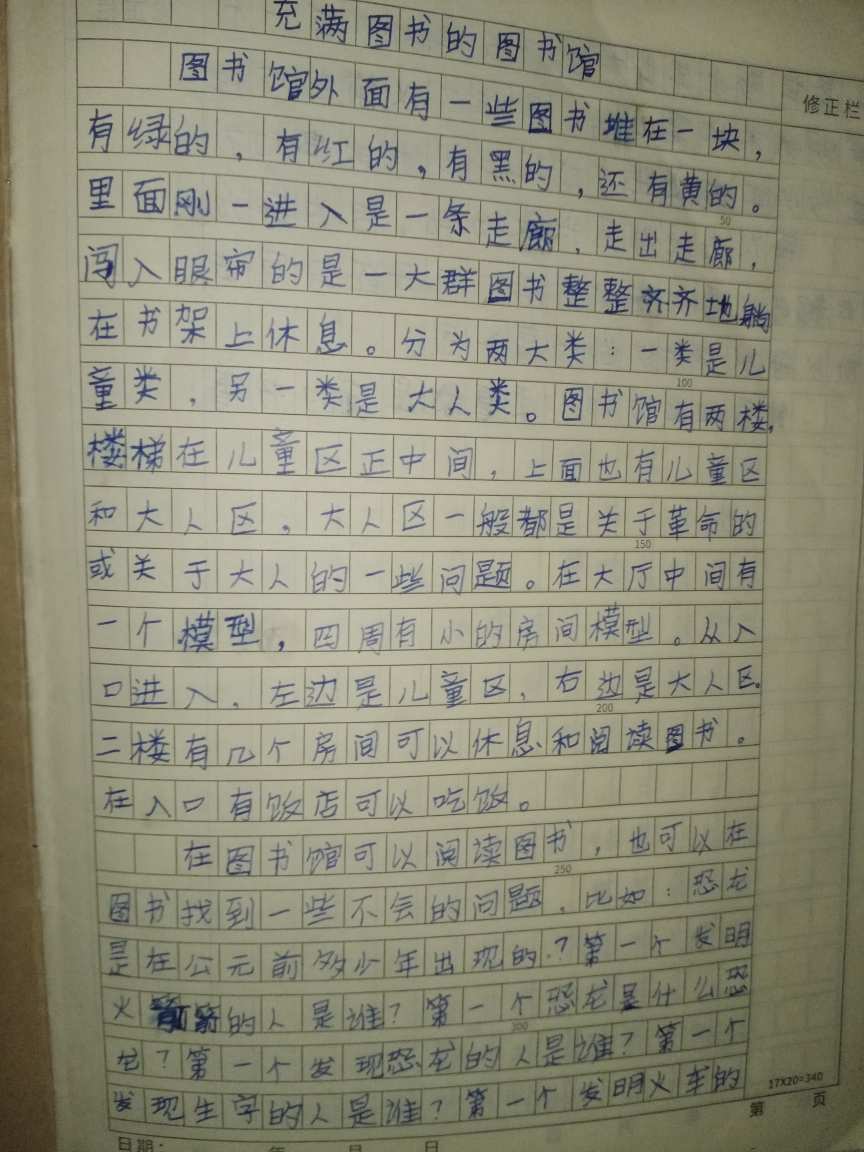 充满图书的图书馆
修正栏
图书馆外面有一些图书堆在一块，
有绿的，有红的，有黑的，还有黄的。
50
里面刚一进入是一条走廊，走出走廊，
闯入眼帘的是一大群图书整整齐齐地躺
在书架上休息。分为两大类：一类是儿
100
童类，另一类是大人类。图书馆有两楼，
楼梯在儿童区正中间，上面也有儿童区
和大人区，大人区一般都是关于革命的
150
或关于大人的一些问题。在大厅中间有
一个模型，四周有小的房间模型。从入
口进入，左边是儿童区，右边是大人区。
200
二楼有几个房间可以休息和阅读图书。
在入口有饭店可以吃饭。
在图书馆可以阅读图书，也可以在
250
图书找到一些不会的问题，比如：恐龙
是在公元前多少年出现的？第一个发明
火箭的人是谁？第一个恐龙是什么恐
300
龙？第一个发现恐龙的人是谁？第一个
发现生字的人是谁？第一个发明火车的
17X20=340
第 页
日期： 年 月 日